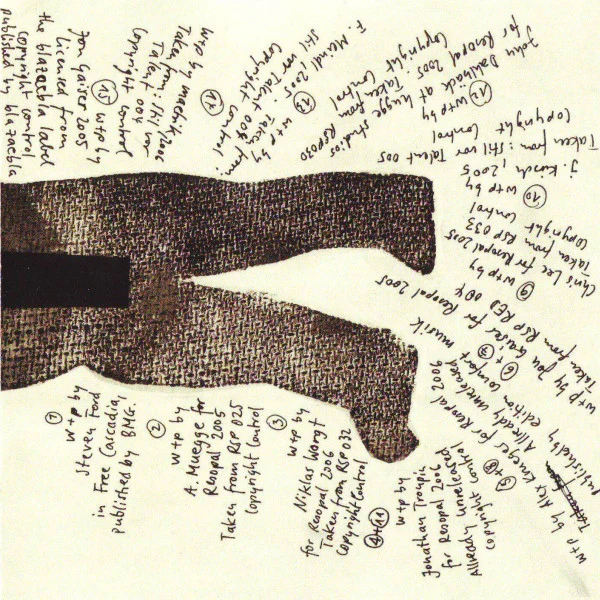 ①
w+p by
Steven Ford
in Free Cascadia,
published by BMG.
②
w+p by
A. Muegge for
Renopal 2005
Taken from RSP 025
Copyright Control
③
w+p by
Niklas Worgt
for Renopal 2006
Taken from RSP 032
Copyright Control
④+⑪
w+p by
Jonathan Troupin
for Renopal 2006
Allready unreleased
copyright control
⑤+⑧
w+p by Alex Krueger for Renopal 2006
Allready unreleased
published by edition comfort musik
⑥+⑦
w+p by Jon Gaiser for Renopal 2005
Taken from RSP RED 004
⑨ w+p by
Chris Lee for Renopal 2005
Taken from RSP 033
Copyright control
⑩ w+p by
J. Kirsch, 2005
Taken from: Stil vor Talent 005
Copyright control
⑫ w+p by
John Dahlback at Hugge studios
for Renopal 2005. Taken from RSP030
Copyright control
⑬ w+p by
F. Meindl, 2005. Taken from:
Stil vor Talent 008
Copyright control
⑭
w+p by Mach K, 2006
Taken from: Stil vor
Talent 004
Copyright control
⑮ w+p by
Jon Gaiser 2005
Licensed from
the blazaebla label
copyright control
published by blazaebla